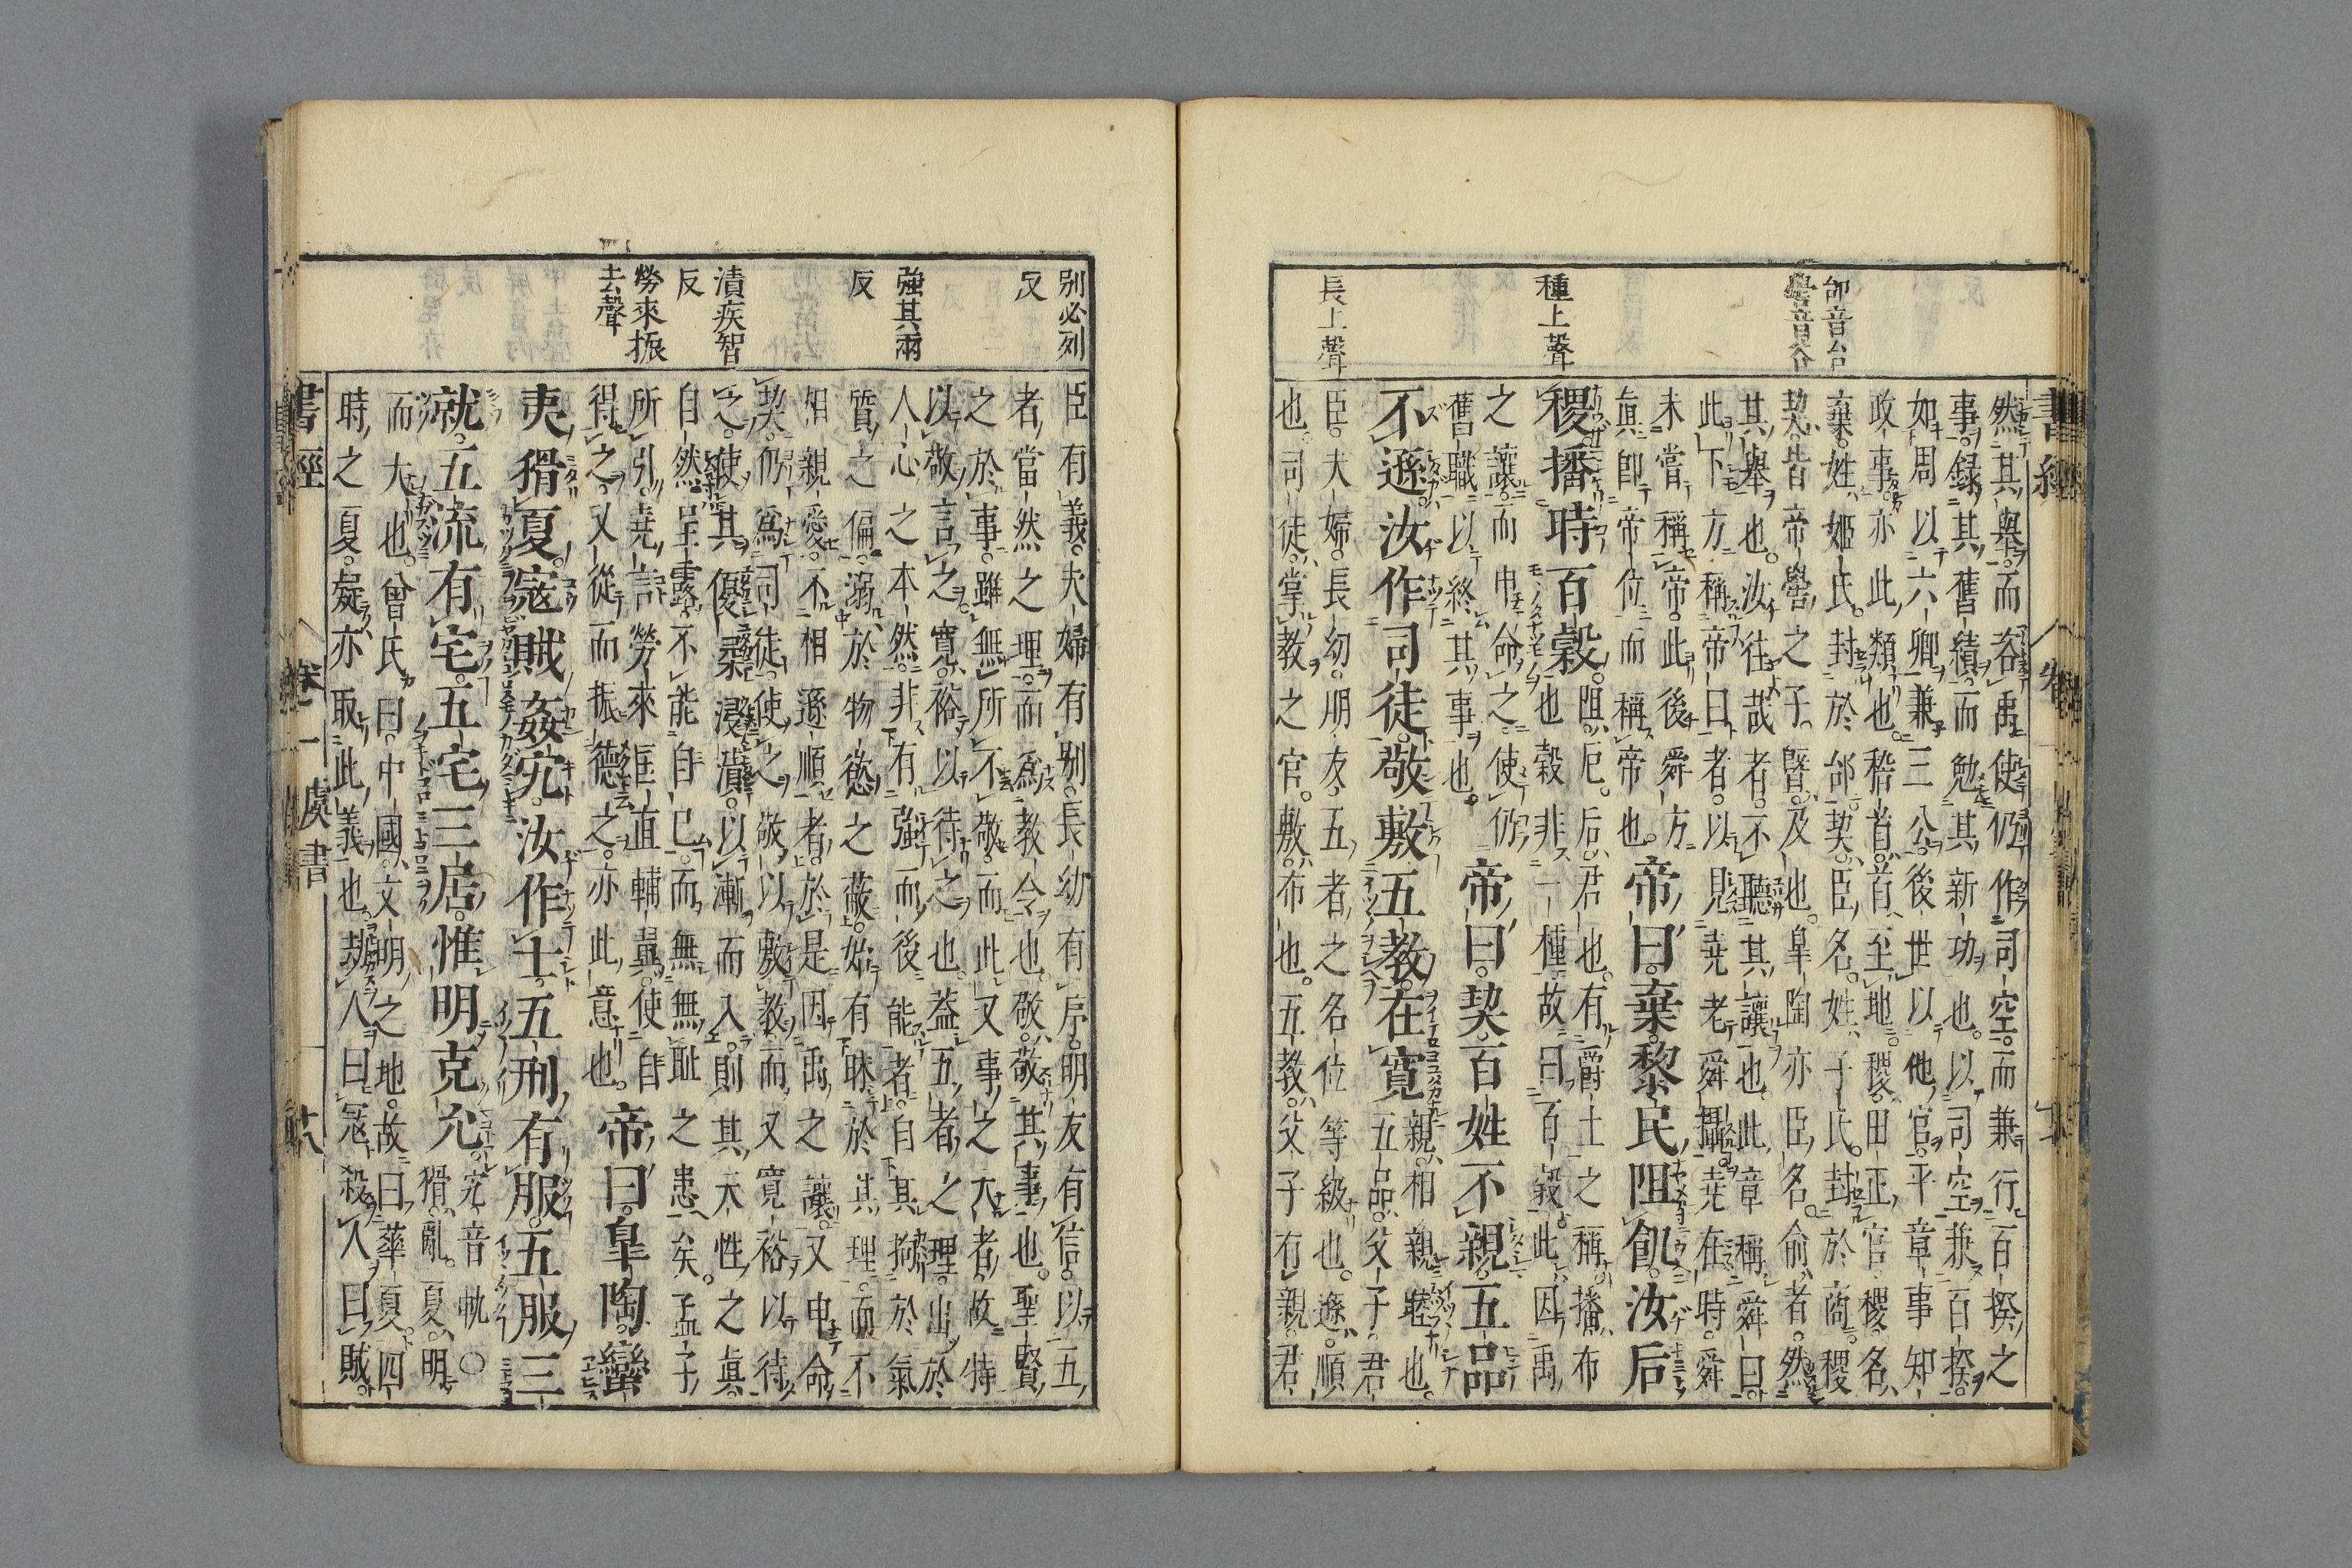 邰音台
嚳音谷
種上聲
長上聲
然其擧而咨禹使仍作司空而兼行百揆之
事錄其舊績而勉其新功也以司空兼百揆
如周以六卿兼三公後世以他官平章事知
政事亦此類也稽首首至地稷田正官稷名
棄姓姬氏封於邰契臣名姓子氏封於商稷
契皆帝嚳之子曁及也皐陶亦臣名俞者然
其擧也汝往哉者不聽其讓也此章稱舜曰
此下方稱帝曰者以見堯老舜攝堯在時舜
未嘗稱帝此後舜方
眞卽帝位而稱帝也帝曰棄黎民阻飢汝后
稷播時百穀阻厄后君也有爵土之稱播布
也穀非一種故曰百穀此因禹
之讓而申命之使仍
舊職以終其事也帝曰契百姓不親五品
不遜汝作司徒敬敷五教在寬親相親睦也
五品父子君
臣夫婦長幼朋友五者之名位等級也遜順
也司徒掌教之官敷布也五教父子有親君
別必列
反
強其兩
反
漬疾智
反
勞來振
去聲
臣有義夫婦有別長幼有序朋友有信以五
者當然之理而爲教令也敬敬其事也聖賢
之於事雖無所不敬而此又事之大者故特
以敬言之寬裕以待之也蓋五者之理出於
人心之本然非有強而後能者自其拘於氣
質之偏溺於物慾之蔽始有昧於其理而不
相親愛不相遜順者於是因禹之讓又申命
契仍爲司徒使之敬以敷教而又寬裕以待
之使其優柔浸漬以漸而入則其天性之眞
自然呈露不能自已而無無恥之患矣孟子
所引堯言勞來匡直輔翼使自
得之又從而振德之亦此意也帝曰皐陶蠻
夷猾夏寇賊姦宄汝作士五刑有服五服三
就五流有宅五宅三居惟明克允宄音軌〇
猾亂夏明
而大也曾氏曰中國文明之地故曰華夏四
時之夏疑亦取此義也劫人曰寇殺人曰賊
書經
卷一
虞書